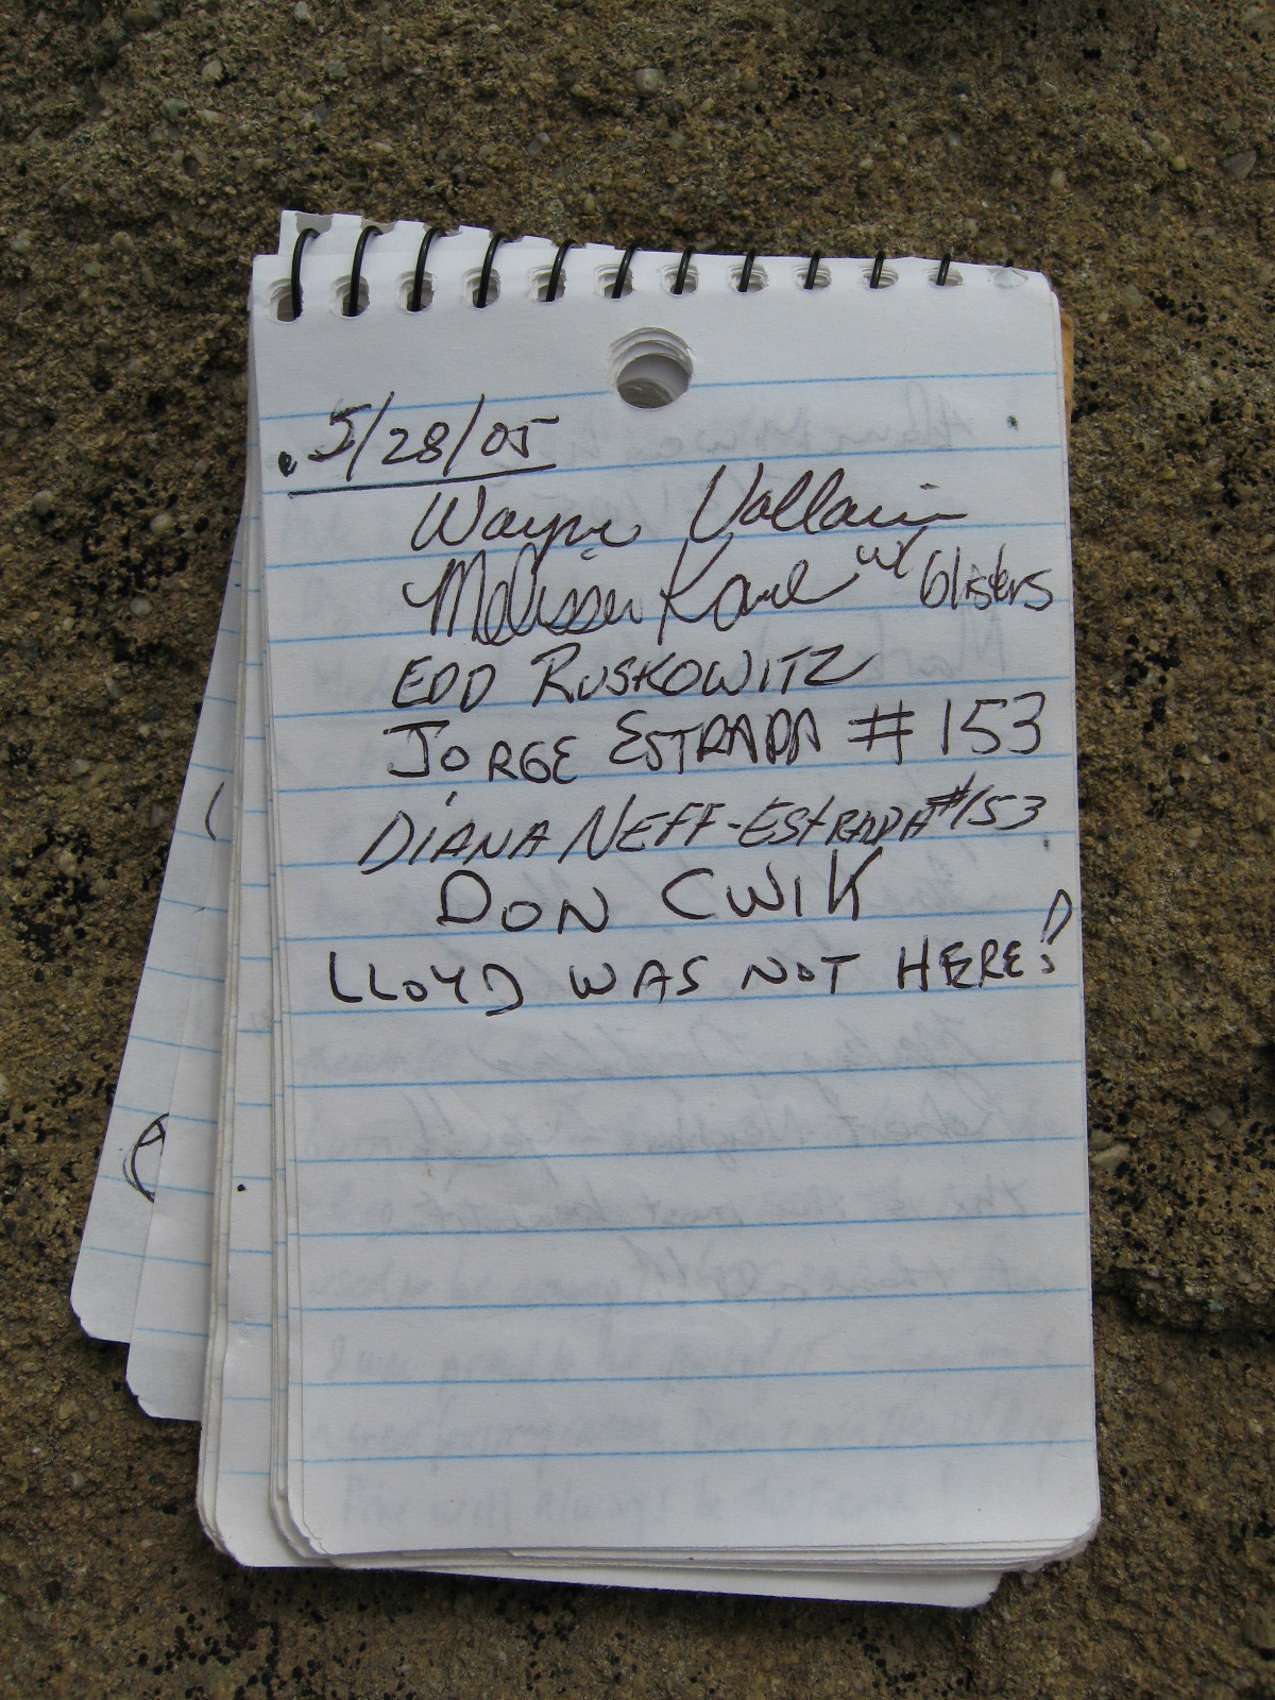 5/28/05
Wayne Vallarin
Melissa Karl w/ blisters
EDD RUSKOWITZ
JORGE ESTRADA # 153
DIANA NEFF-ESTRADA #153
DON CWIK
LLOYD WAS NOT HERE!